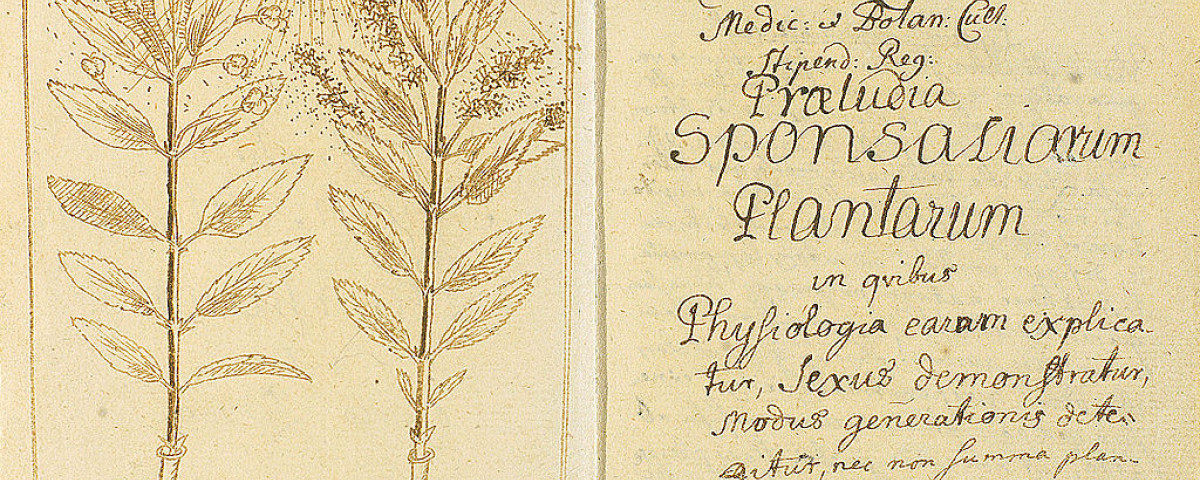 Medic: et Botan: Cult:
Stipend: Reg:
Præludia
Sponsaliarum
Plantarum
in qvibus
Physiologia earum explica-
tur, Sexus demonstratur,
Modus generationis dete-
gitur, nec non summa plan-